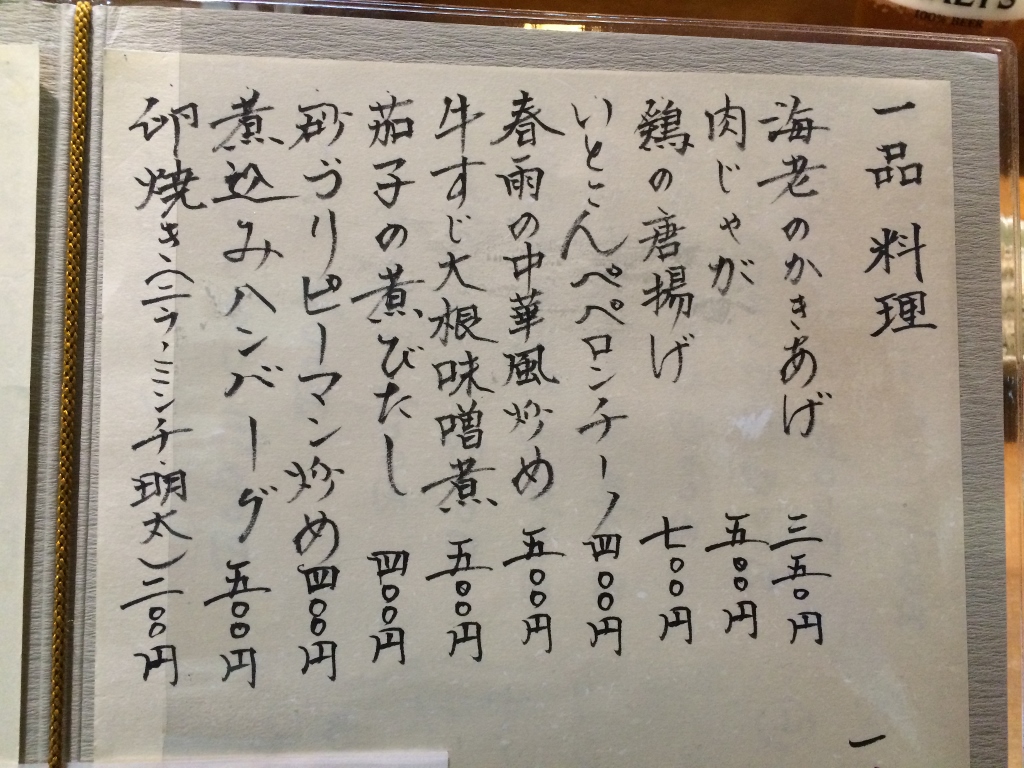 一品料理
海老のかきあげ 三五〇円
肉じゃが 五〇〇円
鶏の唐揚げ 七〇〇円
いとこんペペロンチーノ 四〇〇円
春雨の中華風炒め 五〇〇円
牛すじ大根味噌煮 五〇〇円
茄子の煮びたし 四〇〇円
ゴリピーマン炒め 四〇〇円
煮込みハンバーグ 五〇〇円
卵焼き(ニラ、ミンチ、明太) 二〇〇円
100% BEER